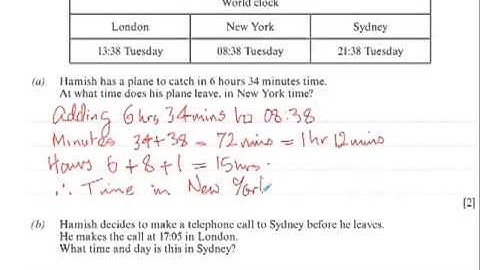 World clock
London New York Sydney
13:38 Tuesday 08:38 Tuesday 21:38 Tuesday
(a) Hamish has a plane to catch in 6 hours 34 minutes time.
At what time does his plane leave, in New York time?
Adding 6 hrs 34 mins to 08:38
Minutes 34+38 = 72 mins = 1 hr 12 mins
Hours 6+8+1 = 15 hrs.
∴ Time in New York
[2]
(b) Hamish decides to make a telephone call to Sydney before he leaves.
He makes the call at 17:05 in London.
What time and day is this in Sydney?